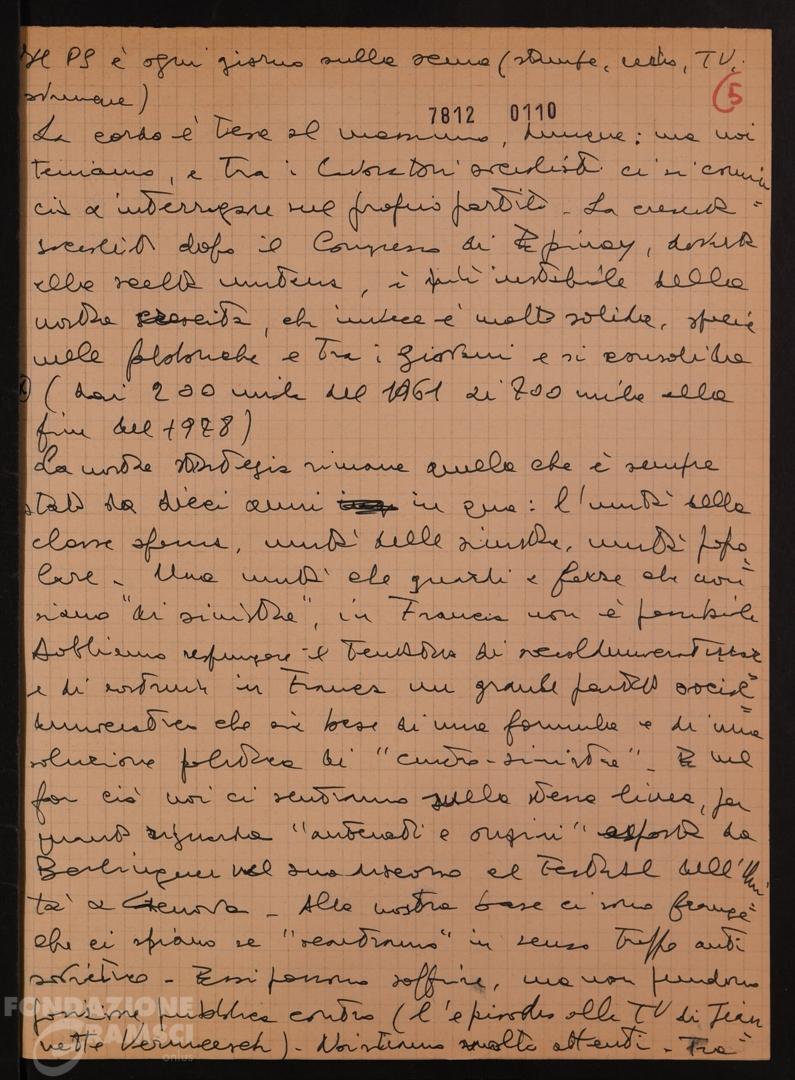 Il PS è ogni giorno sulla scena (stampa, radio, TV,
ovunque)
5
7812 0110
La corda è tesa al massimo, dunque: ma noi
teniamo, e tra i lavoratori socialisti ci si comin=
cia a interrogare sul proprio partito - La crescita
socialista dopo il Congresso di Epinay, dovuta
alla scelta unitaria, è più instabile della
nostra crescita, che invece è molto solida, specie
nelle fabbriche e tra i giovani e si consolida
(dai 200 mila del 1961 ai 700 mila alla
fine del 1978)
La nostra strategia rimane quella che è sempre
stata da dieci anni in qua: l'unità della
classe operaia, unità delle sinistre, unità popo=
lare - Una unità che guardi a forze che non
siano "di sinistra", in Francia non è possibile
Dobbiamo respingere il tentativo di socialdemocratizzare
e di costruire in Francia un grande partito social=
democratico che sia base di una formula e di una
soluzione politica di "centro-sinistra" - E nel
far ciò noi ci sentiamo sulla stessa linea, per
quanto riguarda "antenati e origini" esposta da
Berlinguer nel suo discorso al Festival dell'Uni
tà a Genova - Alla nostra base ci sono frange
che ci spiano se "scantoniamo" in senso troppo anti
sovietico - Essi possono soffrire, ma non prendono
posizione pubblica contro (l'episodio alla TV di Jean
nette Vermeersch) - Noi stiamo molto attenti - Tra=
FONDAZIONE
GRAMSCI
onlus